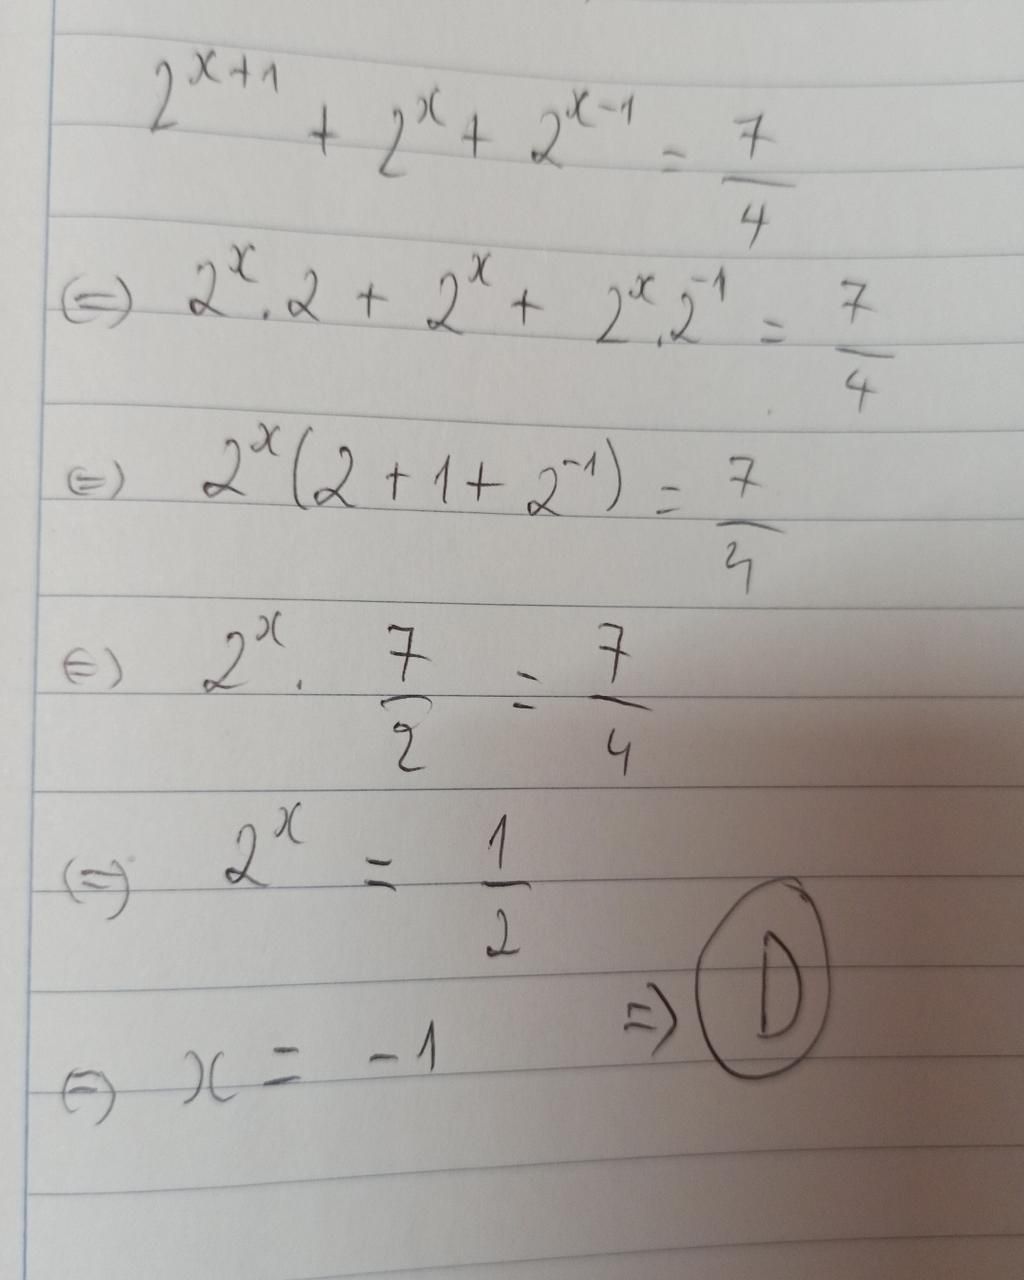 2^{x+1} + 2^x + 2^{x-1} = \frac{7}{4}
(=) 2^x . 2 + 2^x + 2^x . 2^{-1} = \frac{7}{4}
(=) 2^x (2 + 1 + 2^{-1}) = \frac{7}{4}
(=) 2^x . \frac{7}{2} = \frac{7}{4}
(=) 2^x = \frac{1}{2}
(=) x = -1 => D